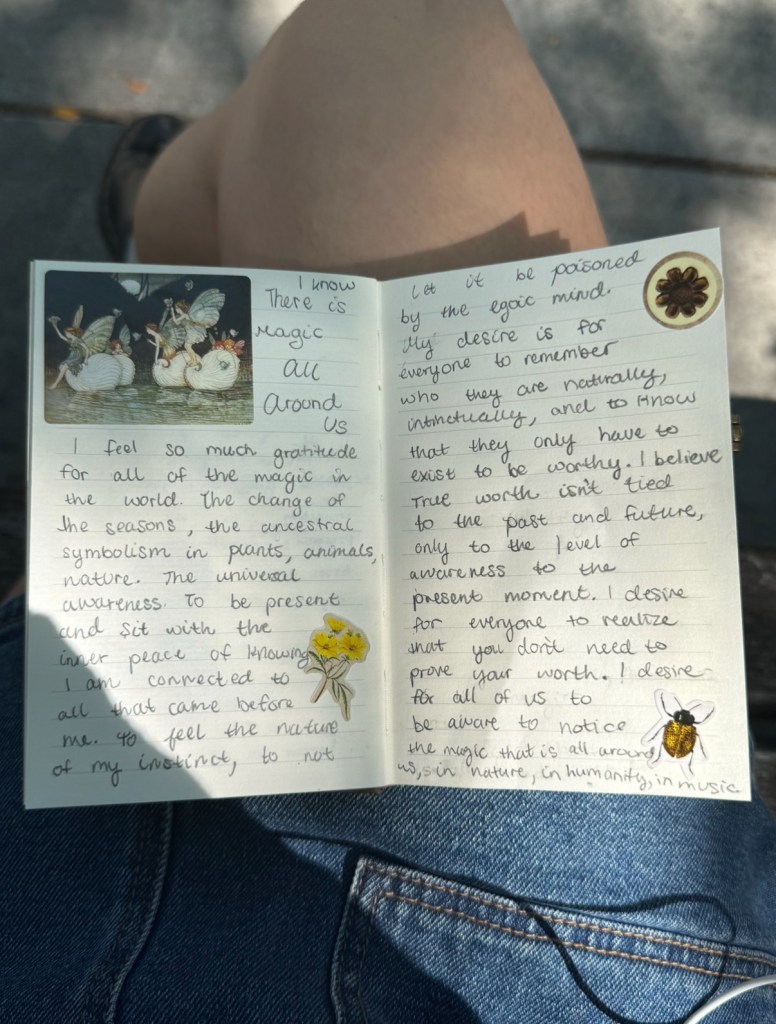 I know
There is
Magic
All
Around
Us
I feel so much gratitude
for all of the magic in
the world. The change of
the seasons, the ancestral
symbolism in plants, animals,
nature. The universal
awareness. To be present
and sit with the
inner peace of knowing
I am connected to
all that came before
me. To feel the nature
of my instinct, to not
let it be poisoned
by the egoic mind.
My desire is for
everyone to remember
who they are naturally,
intinctually, and to know
that they only have to
exist to be worthy. I believe
True worth isn't tied
to the past and future,
only to the level of
awareness to the
present moment. I desire
for everyone to realize
that you don't need to
prove your worth. I desire
for all of us to
be aware to notice
the magic that is all around
us, in nature, in humanity, in music